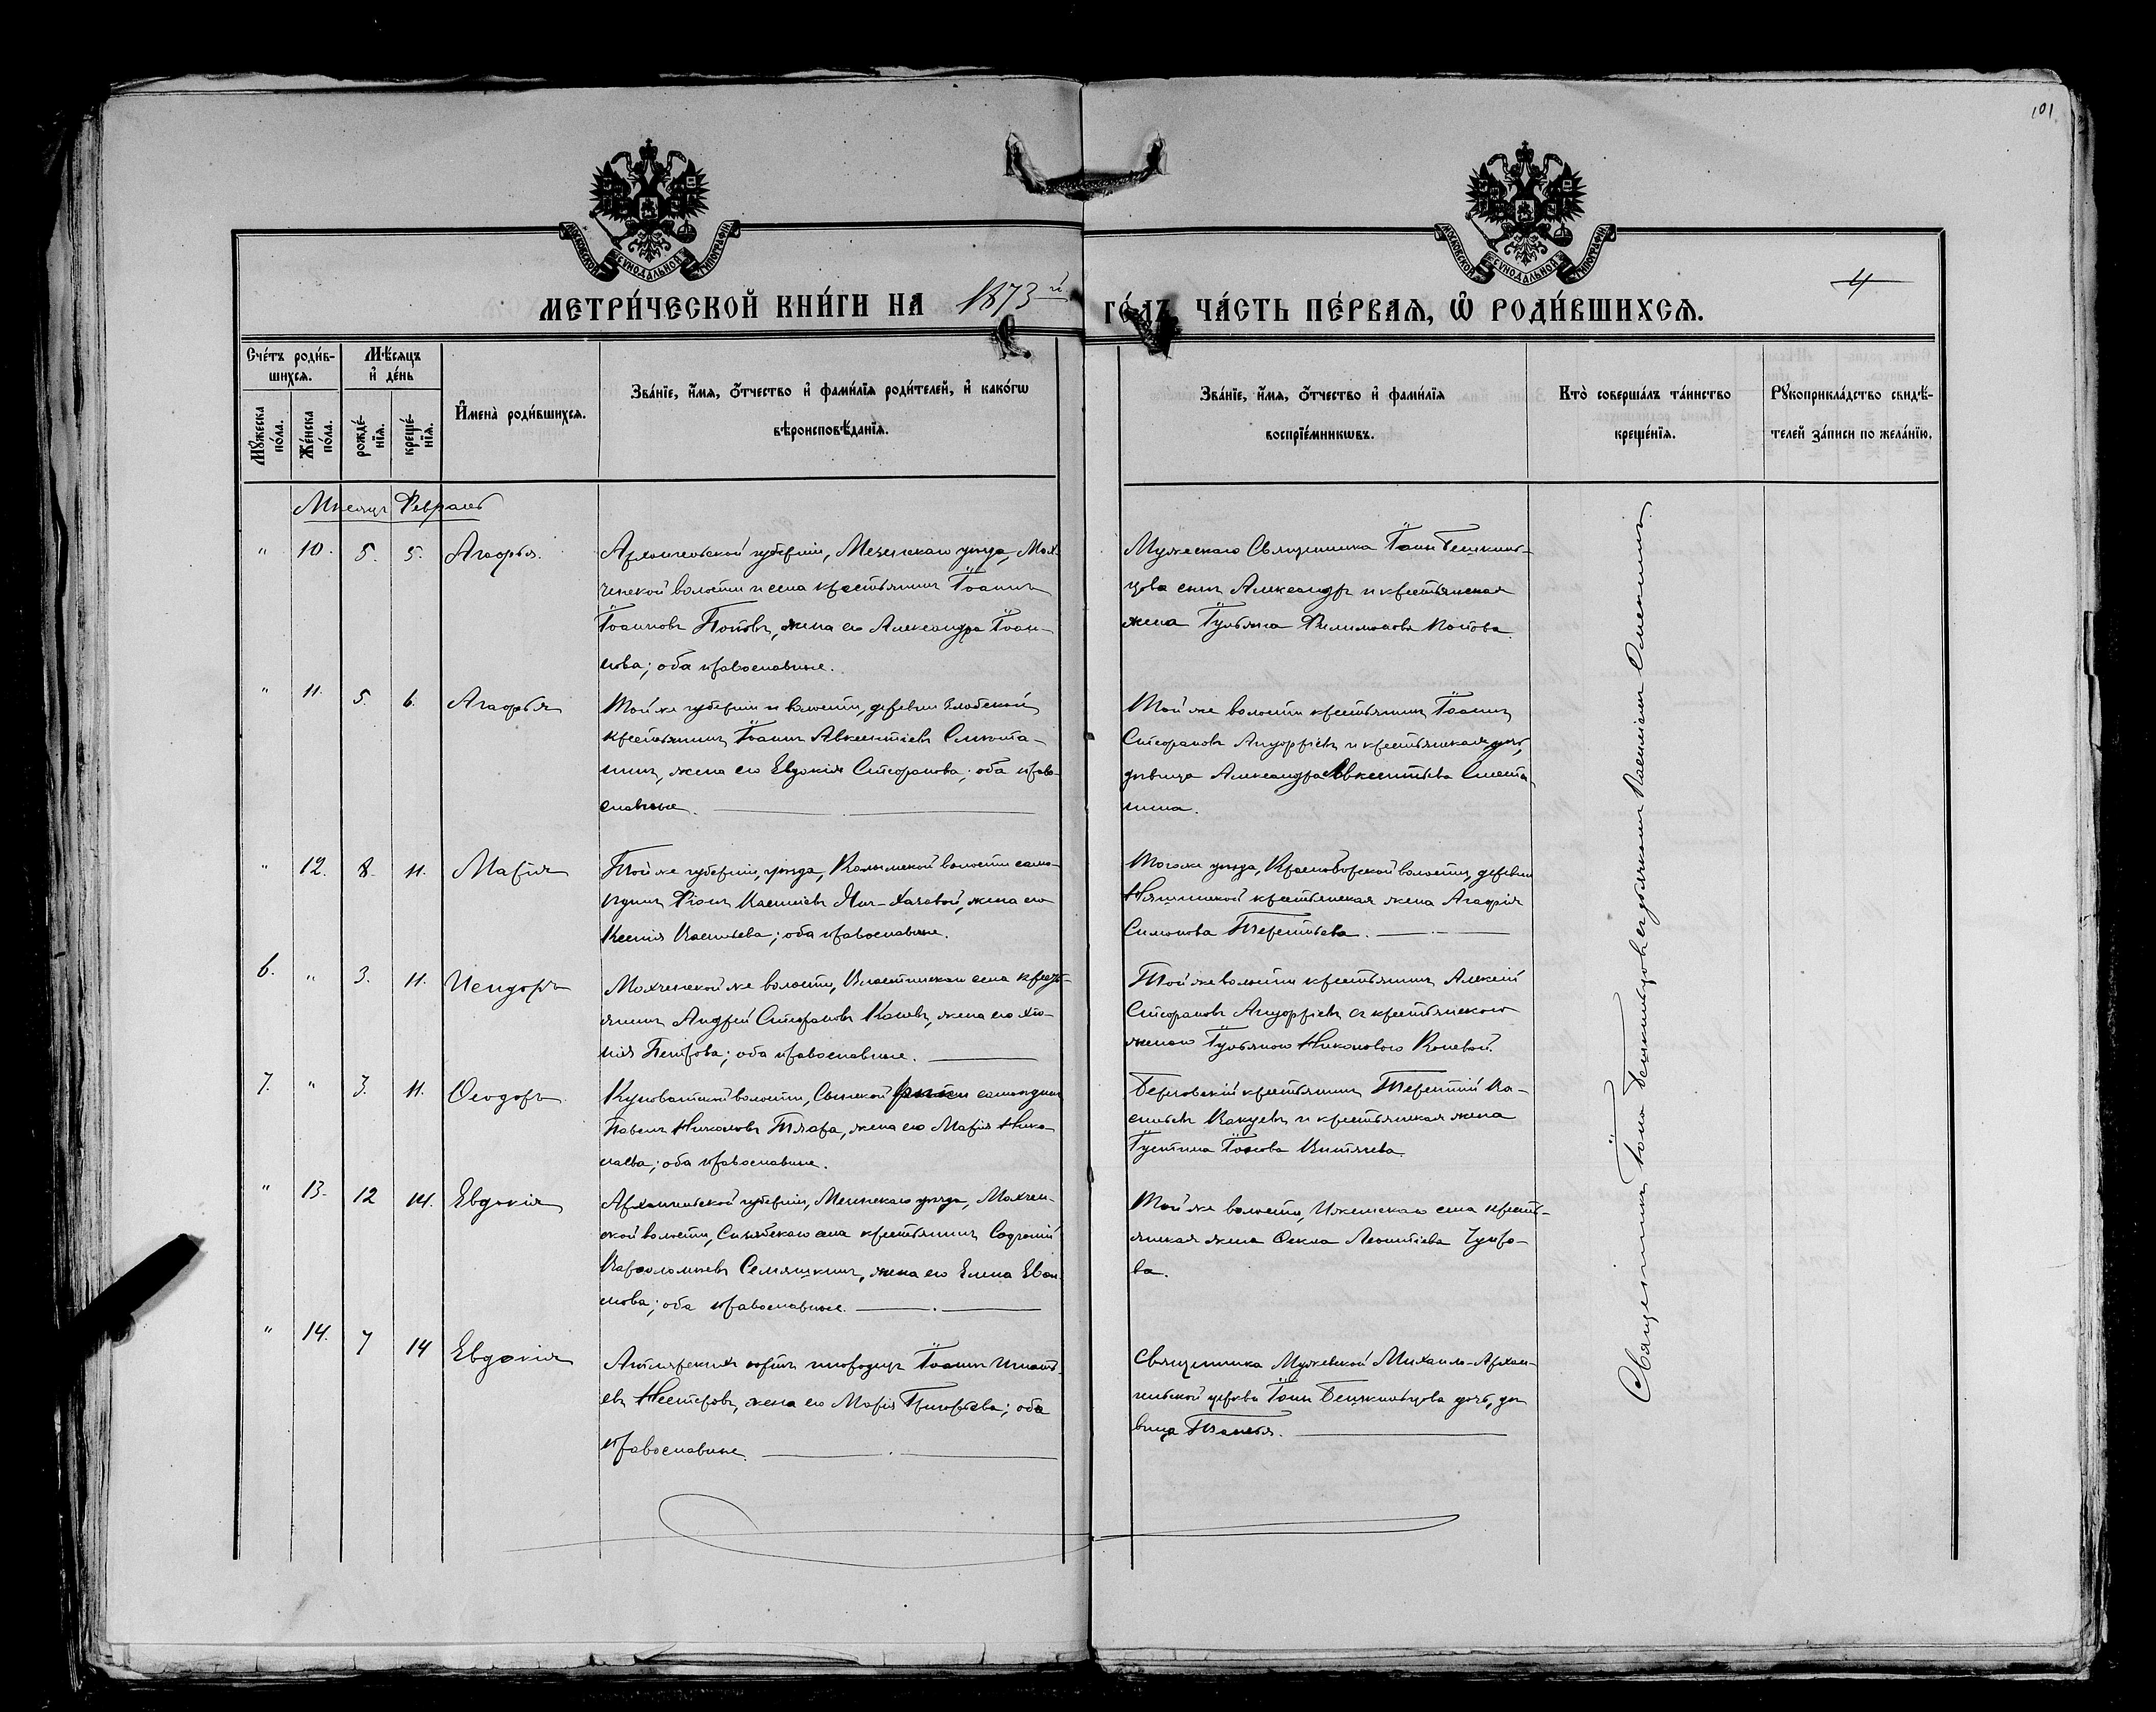 101
МОСКОВСКОЙ СУНОДАЛЬНОЙ ТИПОГРАФІИ
МОСКОВСКОЙ СУНОДАЛЬНОЙ ТИПОГРАФІИ
4
МЕТРИ́ЧЕСКОЙ КНИ́ГИ НА 1873й ГО́ДЪ ЧА́СТЬ ПЕ́РВАѦ, Ѽ РОДИ́ВШИХСѦ.
Сче́тъ роди́в-
шихсѧ.
Мꙋжеска по́ла.
Же́нска по́ла.
Мѣ́сѧцъ
и҆ де́нь
рожде́-
нїѧ.
креще́-
нїѧ.
И҆мена̀ роди́вшихсѧ.
Зва́нїе, и҆́мѧ, ѻ҆́тчество и҆ фами́лїѧ роди́телей, и҆ како́гѡ
вѣроисповѣ́данїѧ.
Зва́нїе, и҆́мѧ, ѻ҆́тчество и҆ фами́лїѧ
воспрїе́мникѡвъ.
Кто̀ соверша́лъ та́инство
креще́нїѧ.
Рꙋкоприкла́дство свидѣ́-
телей за́писи по жела́нїю.
Мѣсяцъ Февраль
" 10. 5. 5. Агафья.
Архангельской губерніи, Мезенскаго уѣзда, Мох-
ченской волости и села крестьянинъ Іоаннъ
Іоанновъ Поповъ, жена его Александра Іоан-
нова; оба православные.
Мужескаго Священника Іоанна Бешкиль-
цова сынъ Александръ и крестьянская
жена Іульяна Филимонова Попова.
" 11. 5. 6. Агафья
Той же губерніи и волости, деревни
крестьянинъ Іоаннъ Авксентіевъ Смета-
нинъ, жена его Евдокія Стефанова; оба право-
славные.
Той же волости крестьянинъ Іоаннъ
Стефановъ Ануфріевъ и крестьянская дочь,
дѣвица Александра Авксентьева Смета
нина.
" 12. 8. 11. Марія
Той же губерніи, уѣзда, волости само-
ѣдинъ Васильевъ жена его
Ксенія Васильева; оба православные.
Того же уѣзда, Красноборской волости, деревни
крестьянская жена Агафія
Симонова Терентьева.
6. " 3. 11. Исидоръ
Мохченской же волости, села кресть-
янинъ Андрей Стефановъ Каневъ, жена его Хіо-
нія Петрова; оба православные.
Той же волости крестьянинъ Алексій
Стефановъ Ануфріевъ съ крестьянскою
женою Іульяною Никоновою Каневой.
7. " 3. 11. Ѳеодоръ
волости, самоѣдинъ
Павелъ Николаевъ жена его Марія Нико-
лаева; оба православные.
Березовскій крестьянинъ Терентій Ва-
сильевъ и крестьянская жена
Іустина
" 13. 12 14. Евдокія
Архангельской губерніи, Мезенскаго уѣзда, Мохчен-
ской волости, Сизябскаго села крестьянинъ Софроній
Варѳоломѣевъ Семяшкинъ, жена его Елена Еван-
нова; оба православные.
Той же волости, Ижемскаго села кресть-
янская жена Ѳекла Леонтіева Чупро-
ва.
" 14. 7 14 Евдокія
инородецъ Іоаннъ Игнать-
евъ Нестеровъ, жена его Марія Григорьева; оба
православные
Священника Мужевской Михаило-Архан-
гельской церкви Іоанна Бешкильцова дочь, дѣ
вица Таисья.
Священникъ Іоаннъ Бешкильцовъ съ дьячкомъ Василіемъ